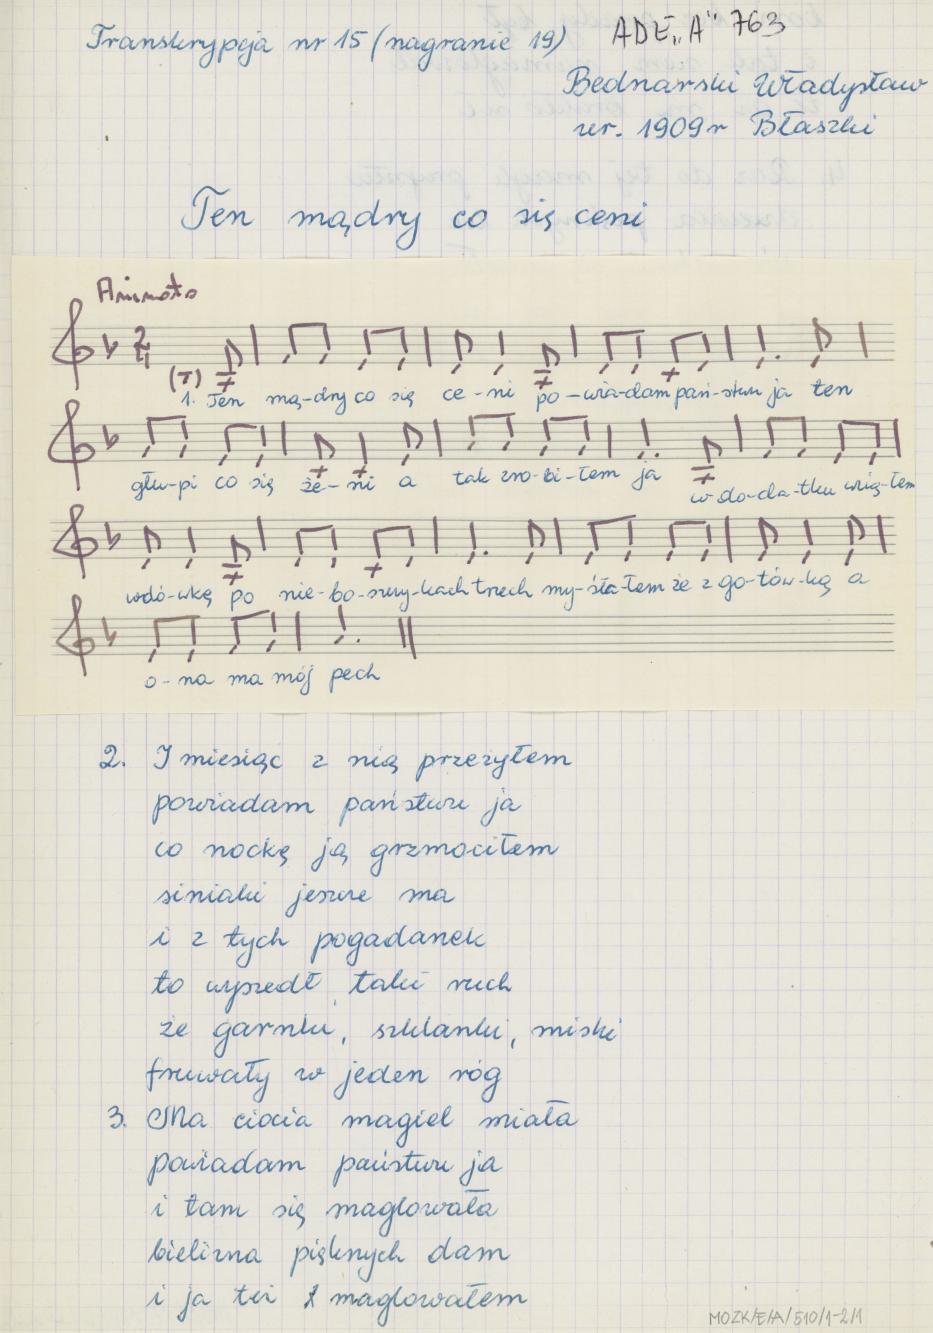 Transkrypcja nr 15 (nagranie 19)
ADE „A" 763
Bednarski Władysław
ur. 1909 r Błaszki
Ten mądry co się ceni
Animato
(T)
1. Ten mą-dry co się ce-ni po-wia-dam pań-stwu ja ten
głu-pi co się że-ni a tak zro-bi-łem ja w do-da-tku wzią-łem
wdó-wkę po nie-bo-szczy-kach trzech my-śla-łem że z go-tów-ką a
o-na ma mój pech
2. I miesiąc z nią przeżyłem
powiadam państwu ja
co nockę ją grzmociłem
siniaki jeszcze ma
i z tych pogadanek
to wyszedł taki ruch
że garnki, szklanki, miski
fruwały w jeden róg
3. Ma ciocia magiel miała
powiadam państwu ja
i tam się maglowała
bielizna pięknych dam
i ja też maglowałem
MOZK/E/A/510/1-2/1